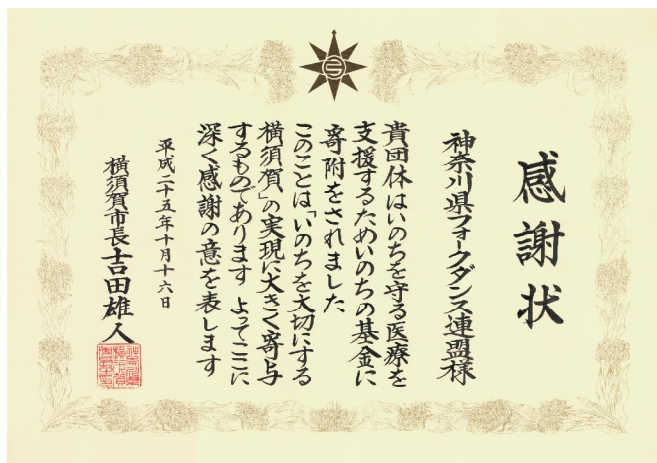 感謝状
神奈川県フォークダンス連盟様
貴団体はいのちを守る医療を
支援するためいのちの基金に
寄附をされました
このことは「いのちを大切にする
横須賀」の実現に大きく寄与
するものであります よってここに
深く感謝の意を表します
平成二十五年十月十六日
横須賀市長吉田雄人